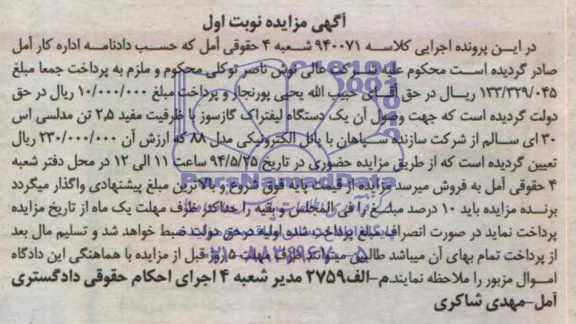 آگهی مزایده نوبت اول
در این پرونده اجرایی کلاسه ۹۴۰۰۷۱ شعبه ۴ حقوقی آمل که حسب دادنامه اداره کار آمل
صادر گردیده است محکوم علیه شرکت عالی نوش ناصر توکلی محکوم و ملزم به پرداخت جمعا مبلغ
۱۳۳/۳۲۹/۰۴۵ ریال در حق آقای حبیب الله یحیی پورنجار و پرداخت مبلغ ۱۰/۰۰۰/۰۰۰ ریال در حق
دولت گردیده است که جهت وصول آن یک دستگاه لیفتراک گازسوز با ظرفیت مفید ۲,۵ تن مدلسی اس
۳۰ ای سالم از شرکت سازنده سپاهان با پانل الکترونیکی مدل ۸۸ که ارزش آن ۲۳۰/۰۰۰/۰۰۰ ریال
تعیین گردیده است که از طریق مزایده حضوری در تاریخ ۹۴/۵/۲۵ ساعت ۱۱ الی ۱۲ در محل دفتر شعبه
۴ حقوقی آمل به فروش میرسد مزایده از قیمت پایه فوق شروع و بالاترین مبلغ پیشنهادی واگذار میگردد
برنده مزایده باید ۱۰ درصد مبلغ را فی المجلس و بقیه را حداکثر ظرف مهلت یک ماه از تاریخ مزایده
پرداخت نماید در صورت انصراف مبلغ پرداخت شده اولیه در حق دولت ضبط خواهد شد و تسلیم مال بعد
از پرداخت تمام بهای آن میباشد طالبین میتوانند ظرف مهلت ۵ روز قبل از مزایده با هماهنگی این دادگاه
اموال مزبور را ملاحظه نمایند.م-الف۲۷۵۹ مدیر شعبه ۴ اجرای احکام حقوقی دادگستری
آمل-مهدی شاکری
ParsNamadData